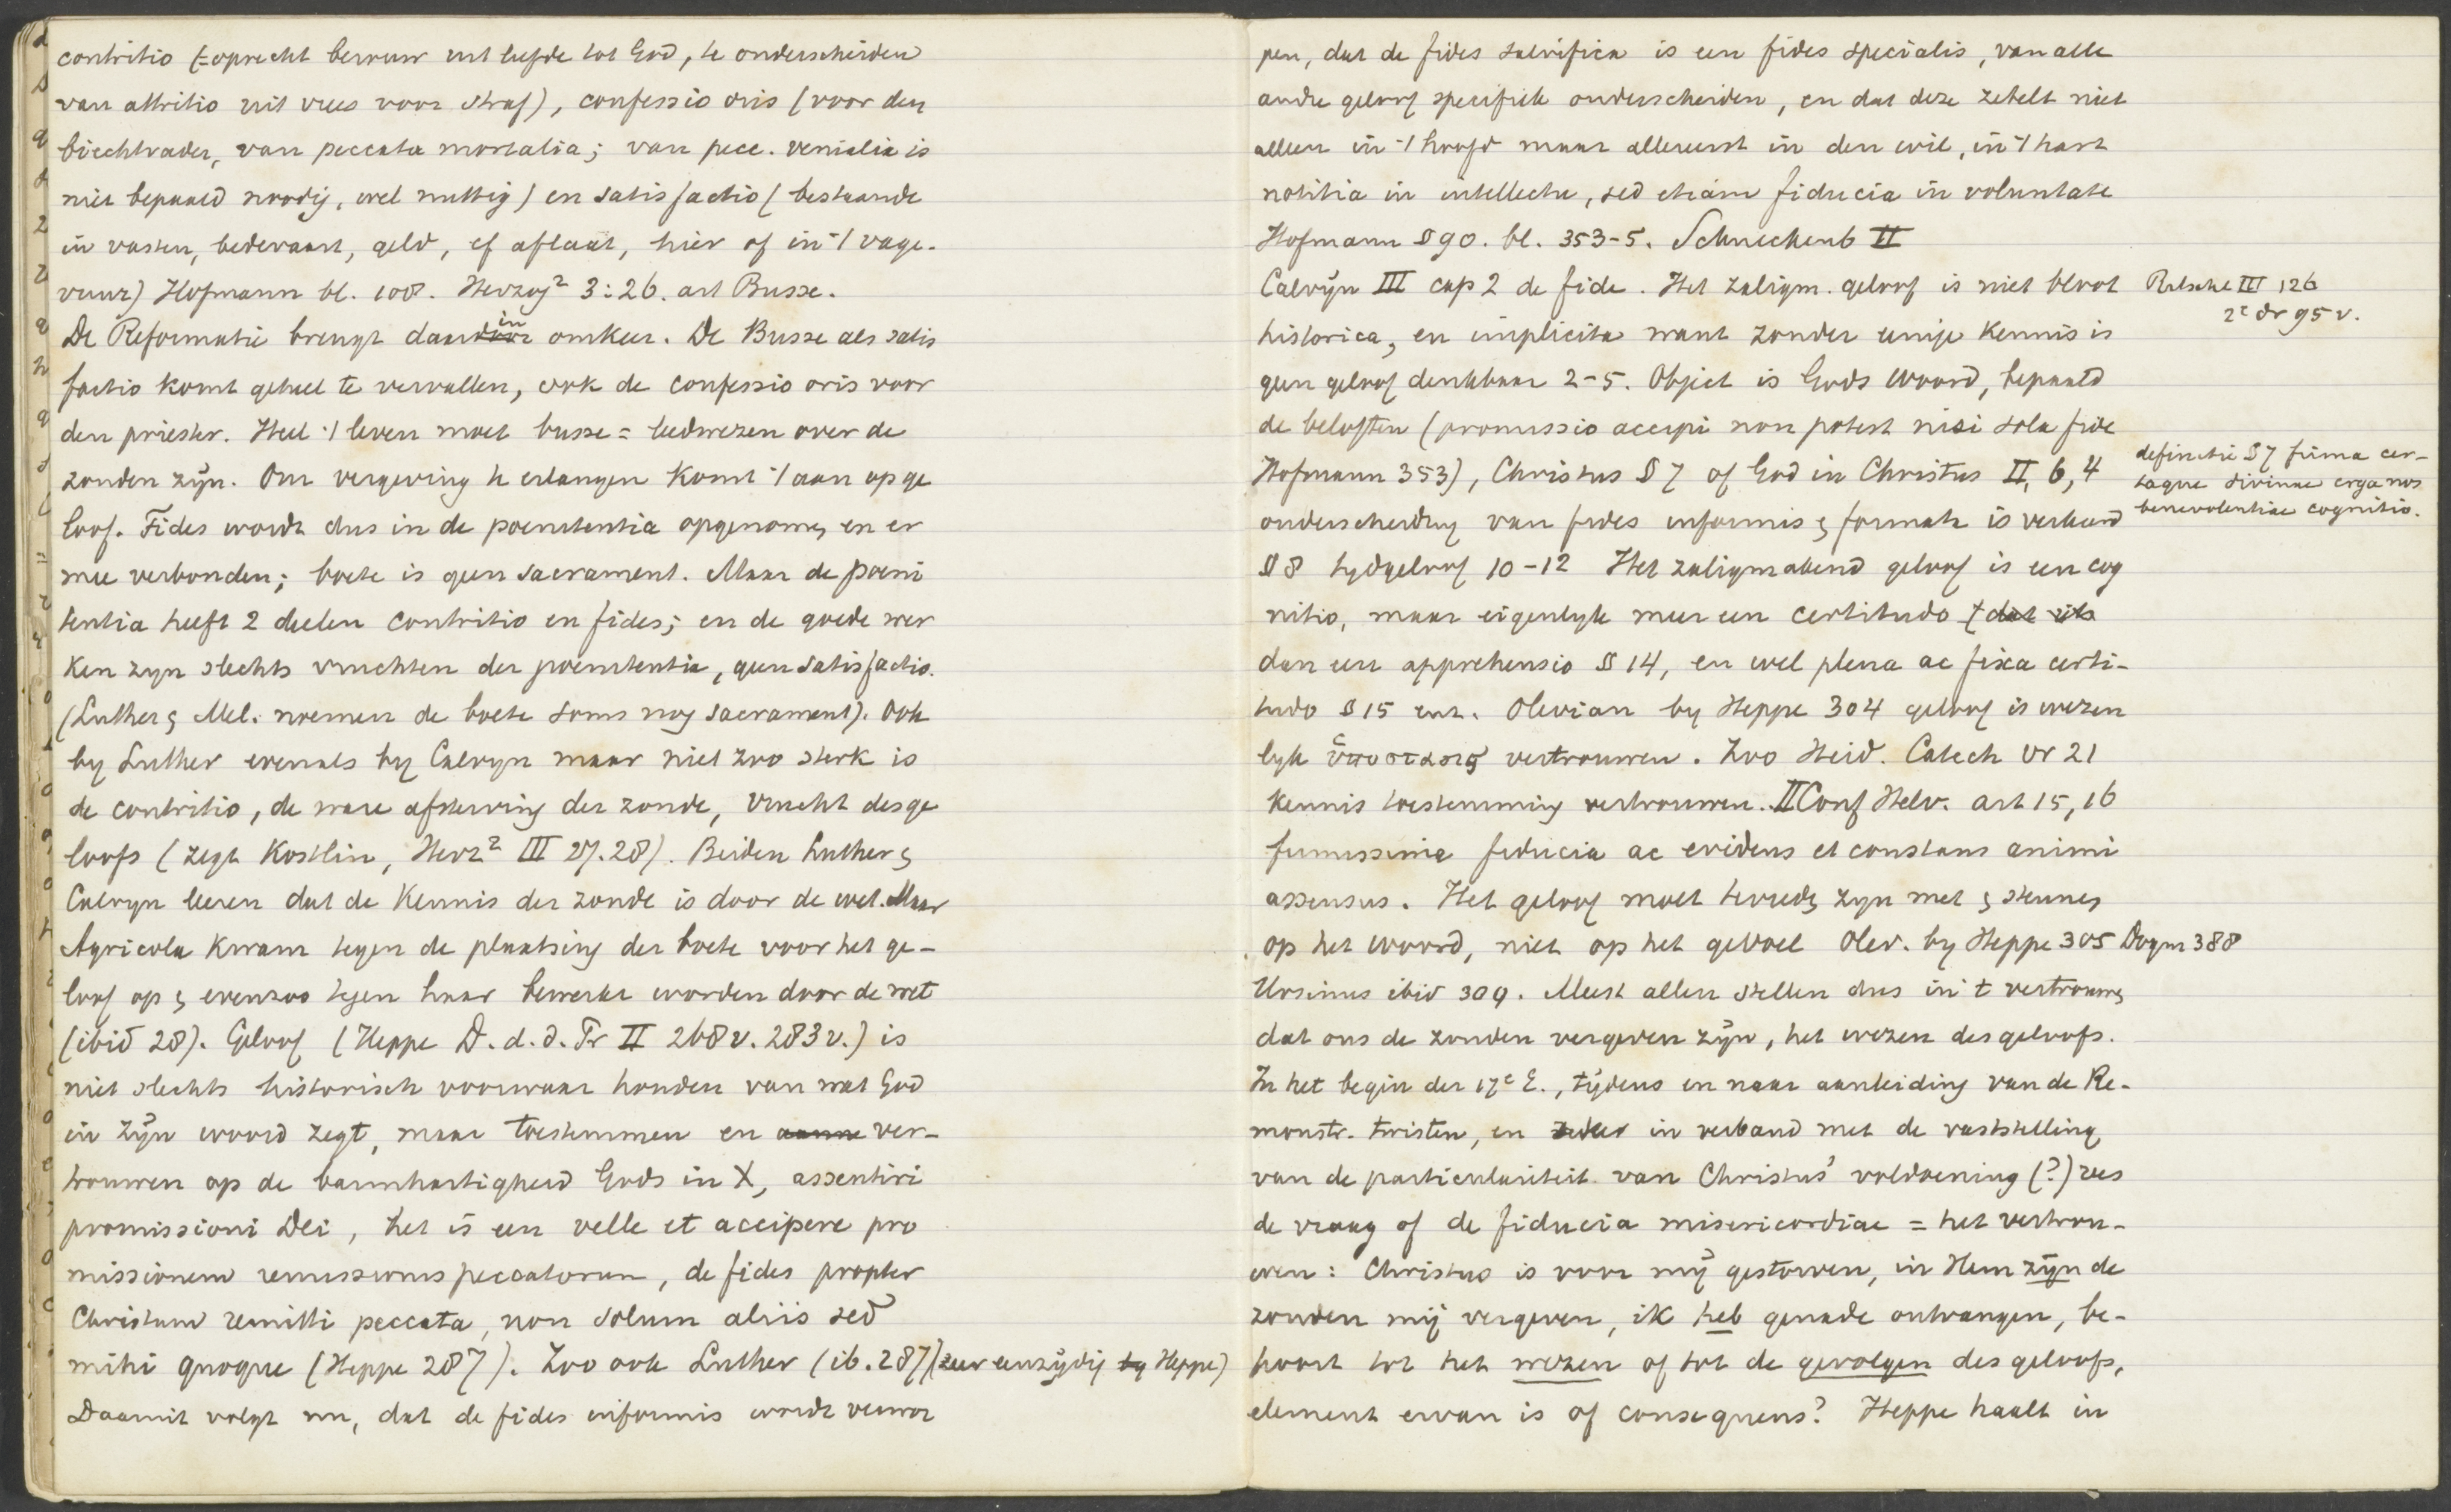 contritio (= oprecht berouw uit liefde tot God, te onderscheiden
van attritio uit vrees voor straf), confessio oris (voor den
biechtvader, van peccata mortalia; van pecc. venialia is
niet bepaald noodig, wel nuttig) en satisfactio (bestaande
in vasten, bedevaart, geld, of aflaat, hier of in 't vage-
vuur) Hofmann bl. 108. Herzog² 3:26. art Busse.
De Reformatie brengt daarin omkeer. De Busse als satis
factio komt geheel te vervallen, ook de confessio oris voor
den priester. Heel 't leven moet busse = leedwezen over de
zonden zijn. Om vergeving te erlangen komt 't aan op ge
loof. Fides wordt dus in de poenitentia opgenomen en er
mee verbonden; boete is geen sacrament. Maar de poeni
tentia heeft 2 deelen contritio en fides; en de goede wer
ken zyn slechts vruchten der poenitentia, geen satisfactio.
(Luther & Mel. noemen de boete soms nog sacrament). Ook
by Luther evenals by Calvyn maar niet zoo sterk is
de contritio, de ware afsterving der zonde, vrucht des ge
loofs (zegt Kostlin, Herz² III 27.28). Beiden Luther &
Calvyn leeren dat de kennis der zonde is door de wet. Maar
Agricola kwam tegen de plaatsing der boete voor het ge-
loof op & evenzoo tegen haar bewerkt worden door de wet
(ibid 28). Geloof (Heppe D. d. d. Pr II 268v. 283v.) is
niet slechts historisch voorwaar houden van wat God
in zijn woord zegt, maar toestemmen en aanne ver-
trouwen op de barmhartigheid Gods in X, assentiri
promissioni Dei, het is een velle et accipere pro
missionem remissionis peccatorum, de fides propter
Christum remitti peccata, non solum aliis sed
mihi quoque (Heppe 287). Zoo ook Luther (ib. 287) (zeer eenzijdig by Heppe)
Daaruit volgt nu, dat de fides informis wordt verwor
pen, dat de fides salvifica is een fides specialis, van alle
andre geloof specifiek onderscheiden, en dat deze zetelt niet
alleen in 't hoofd maar allereerst in den wil, in 't hart
notitia in intellectu, sed etiam fiducia in voluntate
Hofmann § 90. bl. 353-5. Schneckenb II
Calvijn III cap 2 de fide. Het zaligm. geloof is niet bloot
historica, en implicita want zonder eenige kennis is
geen geloof denkbaar 2-5. Object is Gods woord, bepaald
de beloften (promissio accipi non potest nisi sola fide
Hofmann 353), Christus § 7 of God in Christus II, 6, 4
onderscheiding van fides informis & formata is verkeerd
§ 8 tydgeloof 10-12 Het zaligmakend geloof is een cog
nitio, maar eigenlyk meer een certitudo (dat
dan een apprehensio § 14, en wel plena ac fixa certi-
tudo § 15 enz. Olevian by Heppe 304 geloof is wezen
lyk ὑποστασις vertrouwen. Zoo Heid. Catech vr 21
kennis toestemming vertrouwen. II Conf Helv. art 15, 16
firmissima fiducia ac evidens et constans animi
assensus. Het geloof moet tevreden zyn met & steunen
op het woord, niet op het gevoel Olev. by Heppe 305 Dogm 388
Ursinus ibid 309. Meest allen stellen dus in 't vertrouwen
dat ons de zonden vergeven zijn, het wezen des geloofs.
In het begin der 17e E., tijdens en naar aanleiding van de Re-
monstr. twisten, en in verband met de vaststelling
van de particulariteit van Christus' voldoening (?) rees
de vraag of de fiducia misericordiae = het vertrou-
wen: Christus is voor mij gestorven, in Hem zijn de
zonden mij vergeven, ik heb genade ontvangen, be-
hoort tot het wezen of tot de gevolgen des geloofs,
element ervan is of consequens? Heppe haalt in
Ritschl III 126
2e dr 95 v.
definitie § 7 firma cer-
taque divinae erga nos
benevolentiae cognitio.